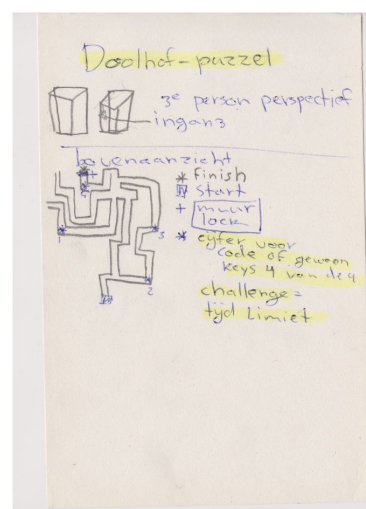 Doolhof-puzzel
3e person perspectief
ingang
bovenaanzicht
* finish
start
+ muur lock
* cijfer voor
code of gewoon
keys 4 van de 4
challenge =
tijd Limiet
1
2
3